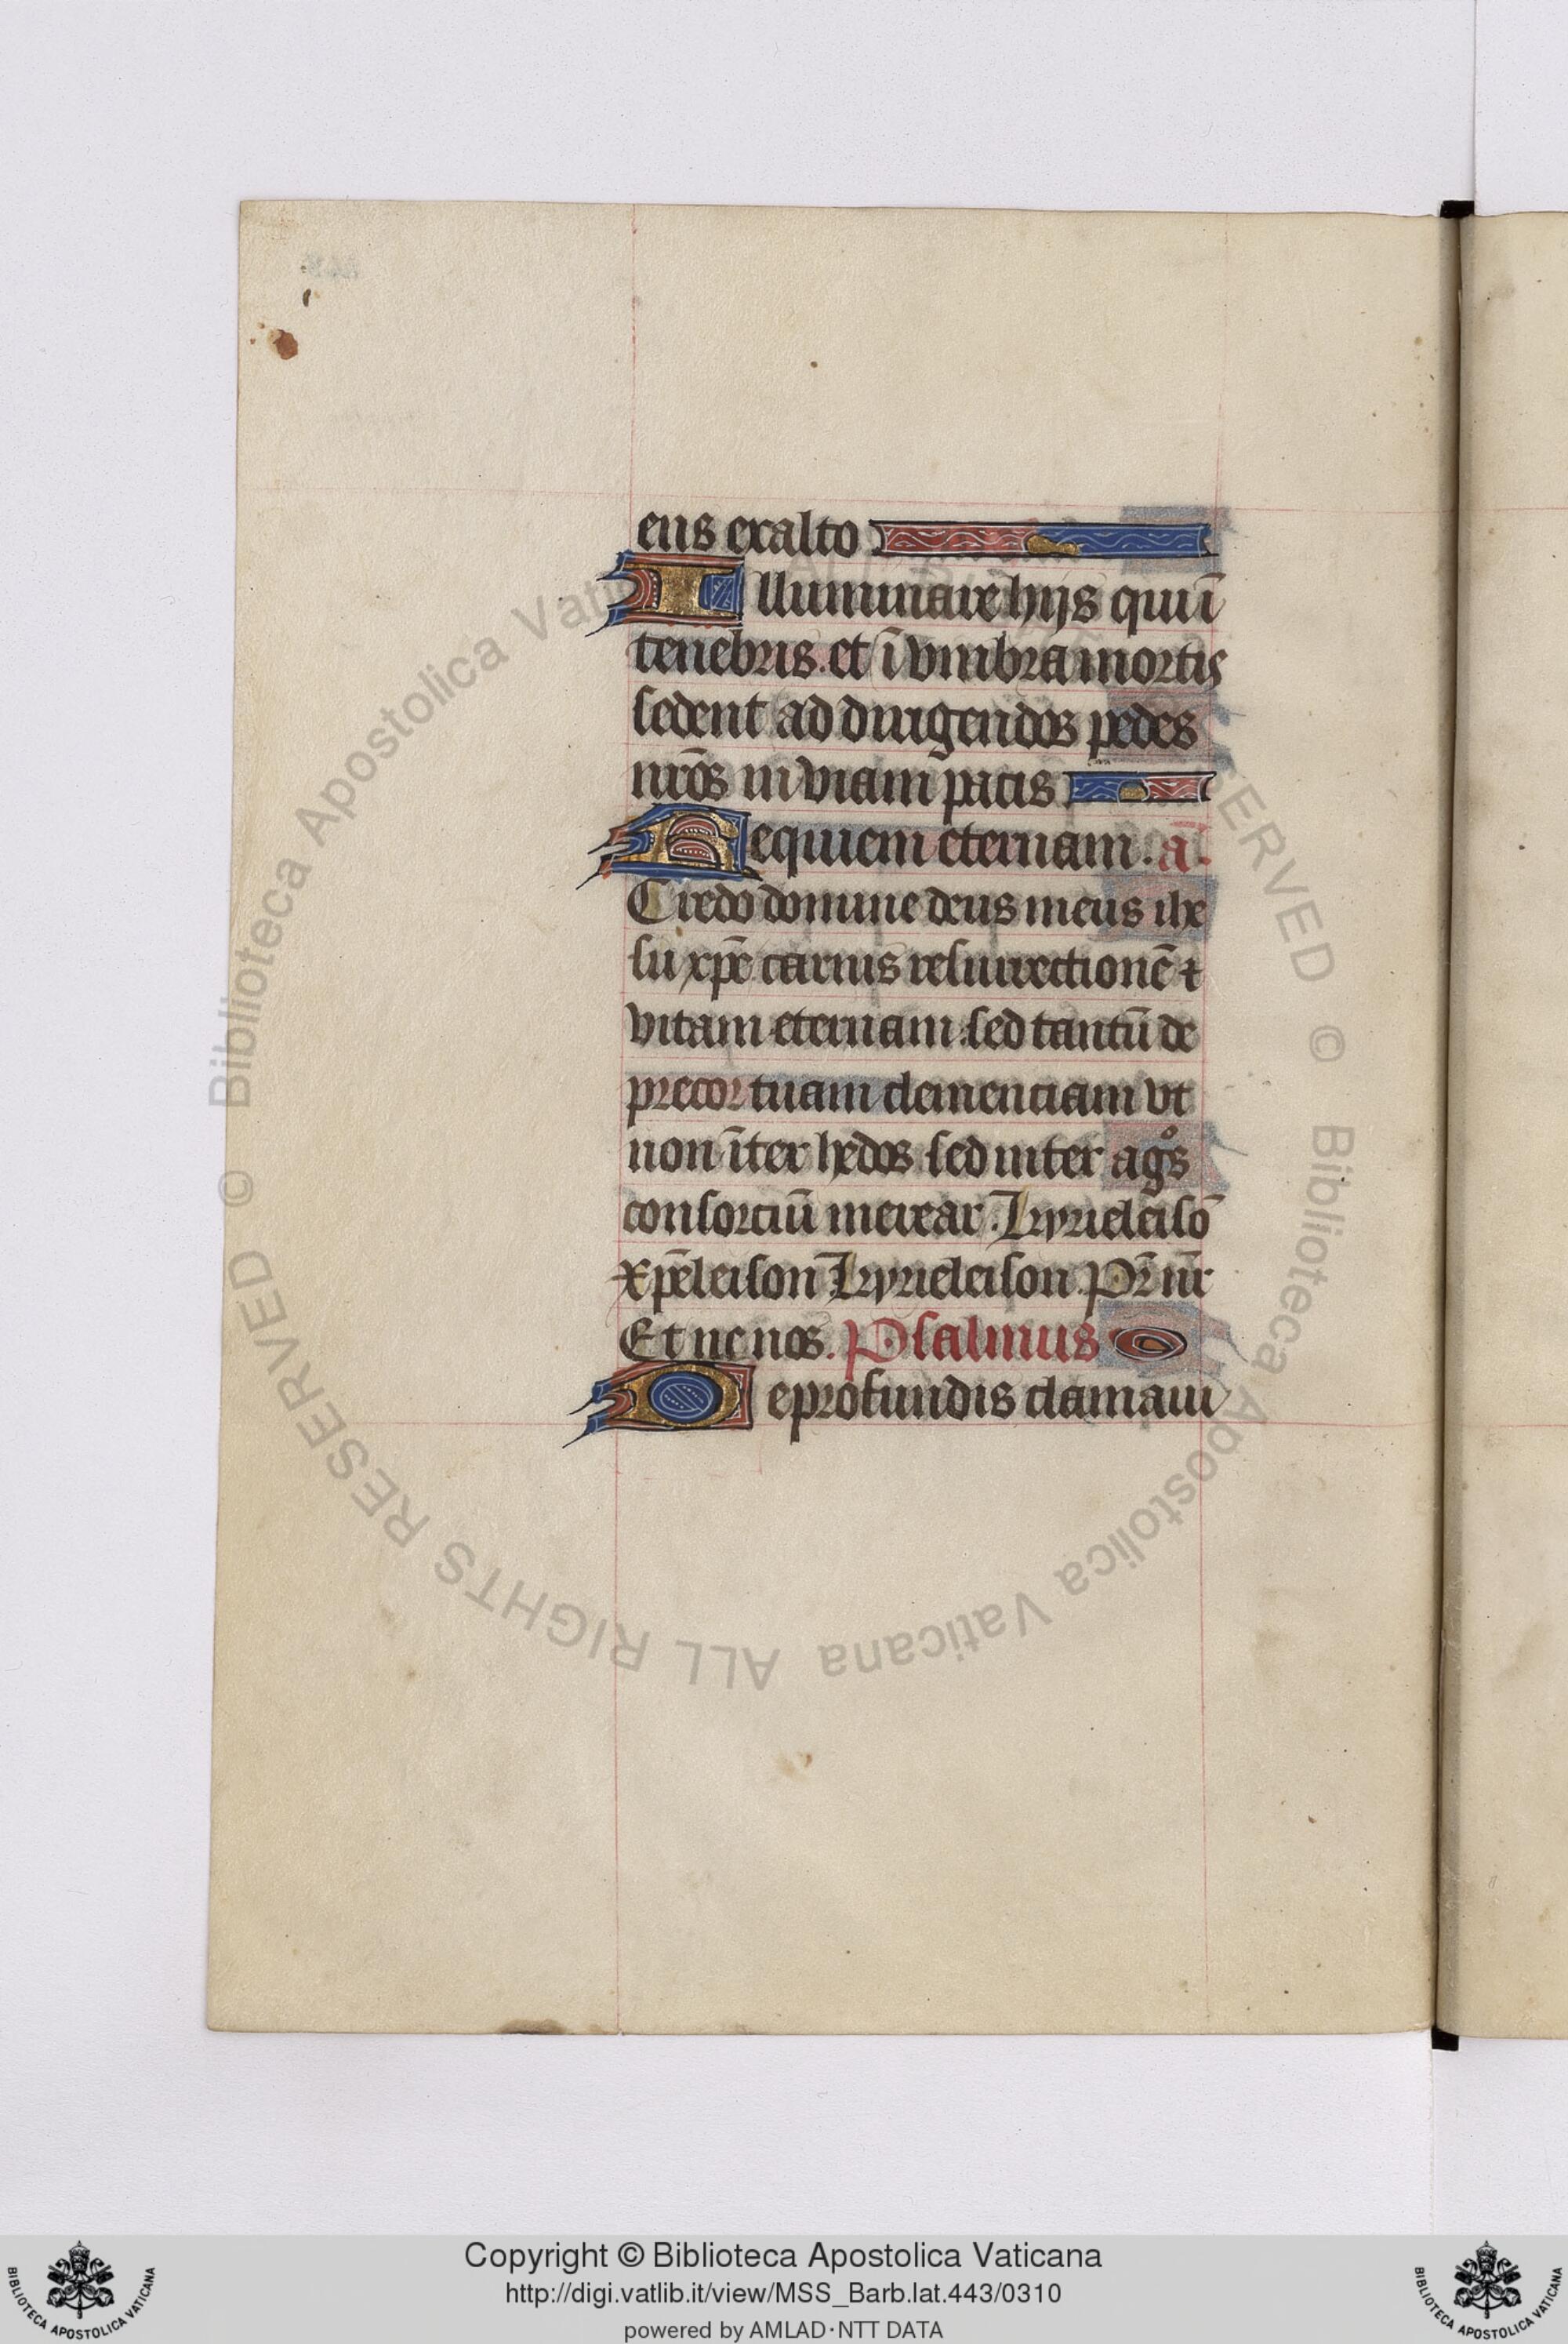 ens exalto
Illuminare hijs qui ī
tenebris. et ī vmbra mortis
sedent ad dirigendos pedes
nr̄os in viam pacis
Requiem eternam. ā.
Credo domine deus meus ihe
su xp̄e carnis resurrectionē ⁊
vitam eternam sed tantū de
precor tuam clemenciam vt
non īter hedos sed inter agͦs
consorciū merear. Kyrieleisō
xp̄eleison Kyrieleison. Pr̄ nr̄
Et ne nos. Psalmus
De profundis clamaui
© Biblioteca Apostolica Vaticana ALL RIGHTS RESERVED © Biblioteca Apostolica Vaticana ALL RIGHTS RESERVED
Copyright © Biblioteca Apostolica Vaticana
http://digi.vatlib.it/view/MSS_Barb.lat.443/0310
powered by AMLAD·NTT DATA
BIBLIOTECA APOSTOLICA VATICANA
BIBLIOTECA APOSTOLICA VATICANA